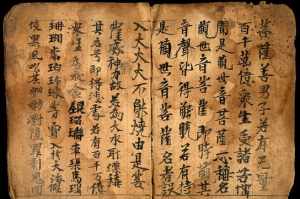 菩薩善男子若有无量
百千萬億衆生受諸苦惱
聞是觀世音菩薩一心稱名
觀世音菩薩即時觀其
音聲皆得解脫若有持
是觀世音菩薩名者設
入大火火不能燒由是菩
威神力故若為大水所漂稱
其名号即得淺處若有百千
衆生為求金銀瑠璃車璖馬瑙
珊瑚琥珀珍珠等寶入於大海假
使黑風吹其船舫飄墮羅刹鬼國